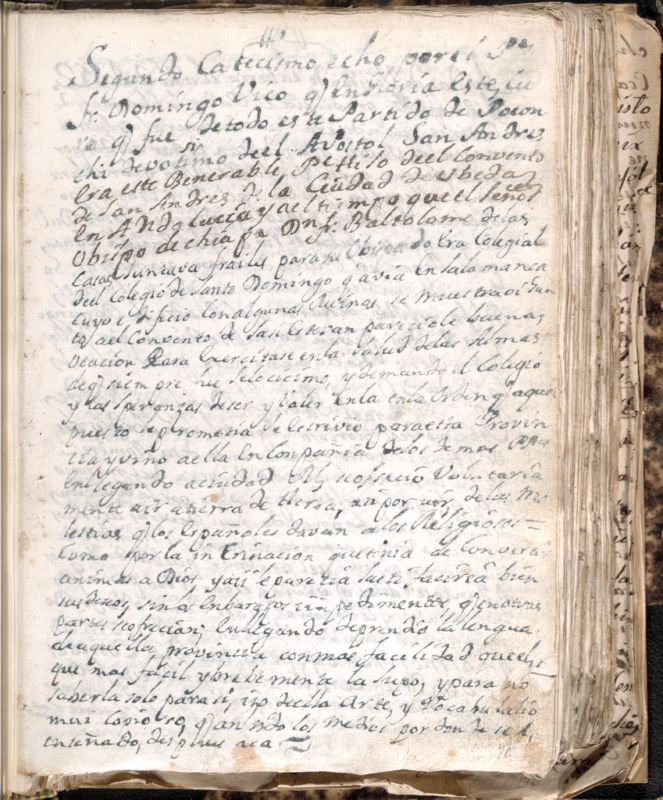 Segundo Catecismo echo por el Pe
fr. Domingo Vico q
q fue de todo este Partido de Pocon
chi devotimo deel Apostol San Andres
era este Benerable Pe hijo deel Convento
de San Andres de la Ciudad de Vbeda
en Andalucia y al tiempo que el Señor
Obispo de chiapa Dn fr. Bartolome delas
Casas juntava frailes para su Obispado era Colegial
deel Colegio de Santo Domingo q avia en Salamanca
cuyo edificio con algunas Ruinas se muestra oi jun
to ael Convento de San Estevan pareciole buena
Ocacion para exercitarse en la Salud de las Almas
de q siempre fue selocicimo, y dexando el Colegio
y las speranzas de ser y valer en la en la Orden q aquel
puesto le prometia se escrivio para esta Provin
cia y vino a ella en Compañia de los demas
en llegando a ciudad Rl se ofrecio Voluntaria
mente a ir a tierra de Guerra, asi por uir de las mo
lestias q los Españoles davan a los Religiosos =
Como por la inclinacion que tenia de Convertir
animas a Dios y alli le parecia
sus deseos, sin los enbarazos i inpedimentos, q en otras
partes se ofrecian; en llegando deprendio la lengua
de aquella provincia con mas facilidad que el
que mas facil y brebemente la supo, y para no
saberla solo para si, iso de ella Arte, y Vocabulario
mui Copioso, q an sido los medios por donde se a
enseñado, despues aca =